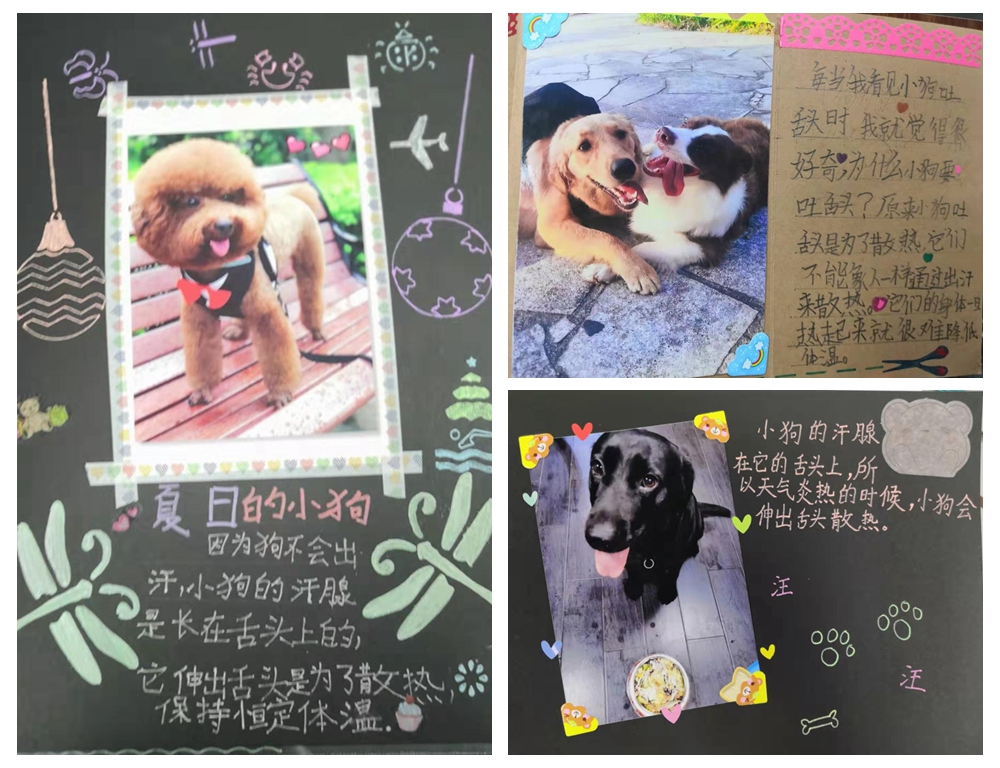 夏日的小狗
因为狗不会出
汗,小狗的汗腺
是长在舌头上的,
它伸出舌头是为了散热,
保持恒定体温.
每当我看见小狗吐
舌头时,我就觉得很
好奇,为什么小狗要
吐舌头?原来小狗吐
舌头是为了散热,它们
不能象人一样通过出汗
来散热。它们的身体一旦
热起来就很难降低
体温。
小狗的汗腺
在它的舌头上,所
以天气炎热的时候,小狗会
伸出舌头散热。
汪
汪